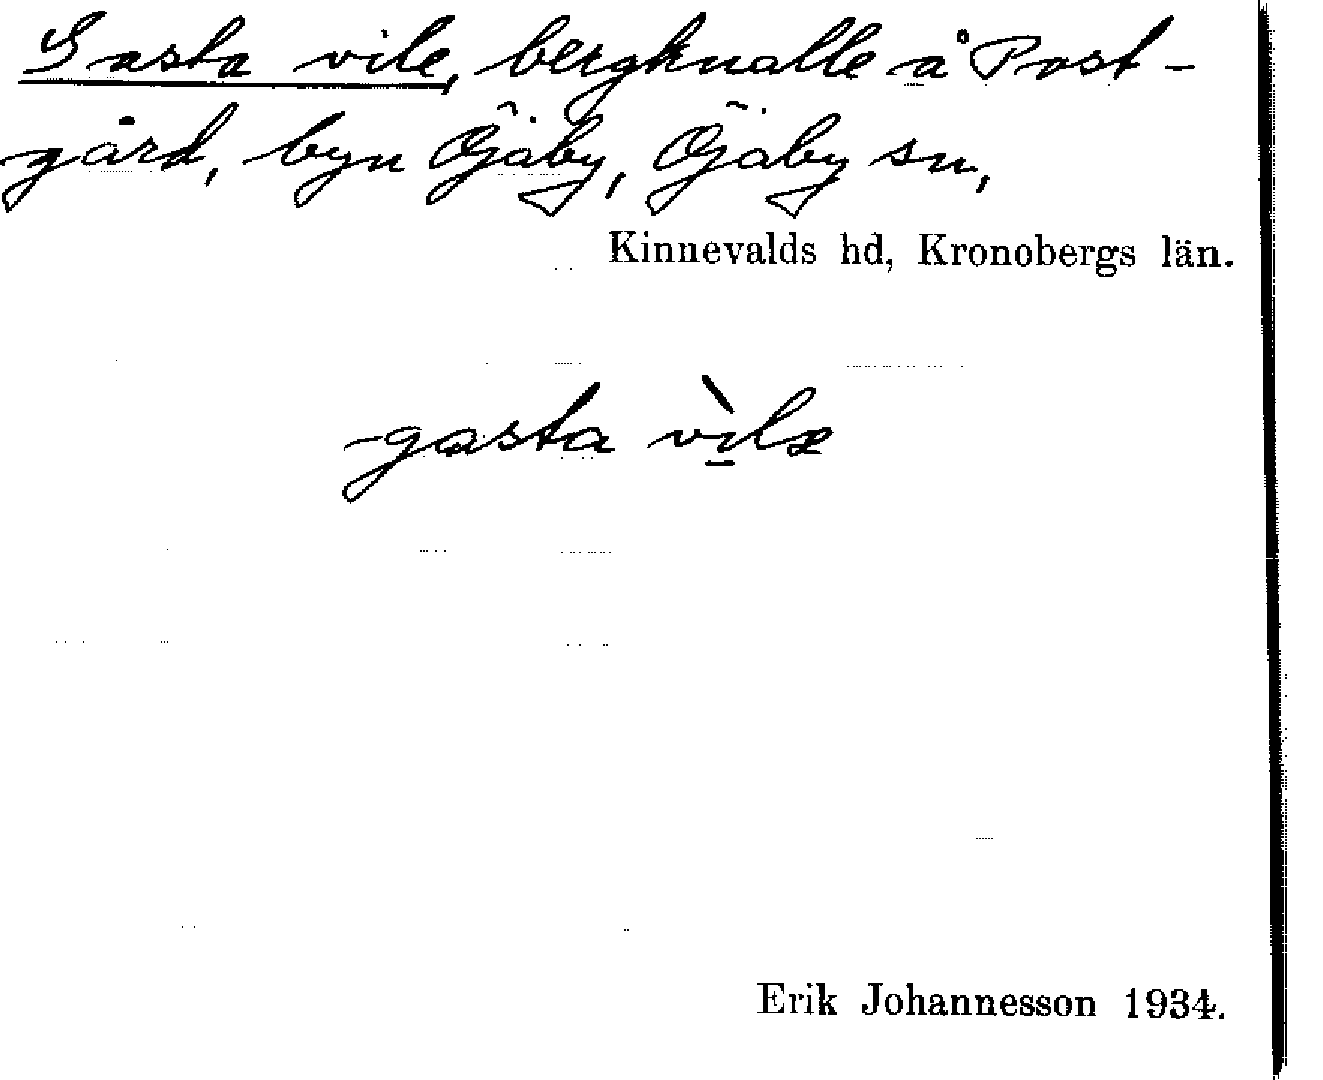 Gasta vile, bergknalle å Post-
gård, byn Öjaby, Öjaby sn,
Kinnevalds hd, Kronobergs län.
gasta vìlæ
Erik Johannesson 1934.